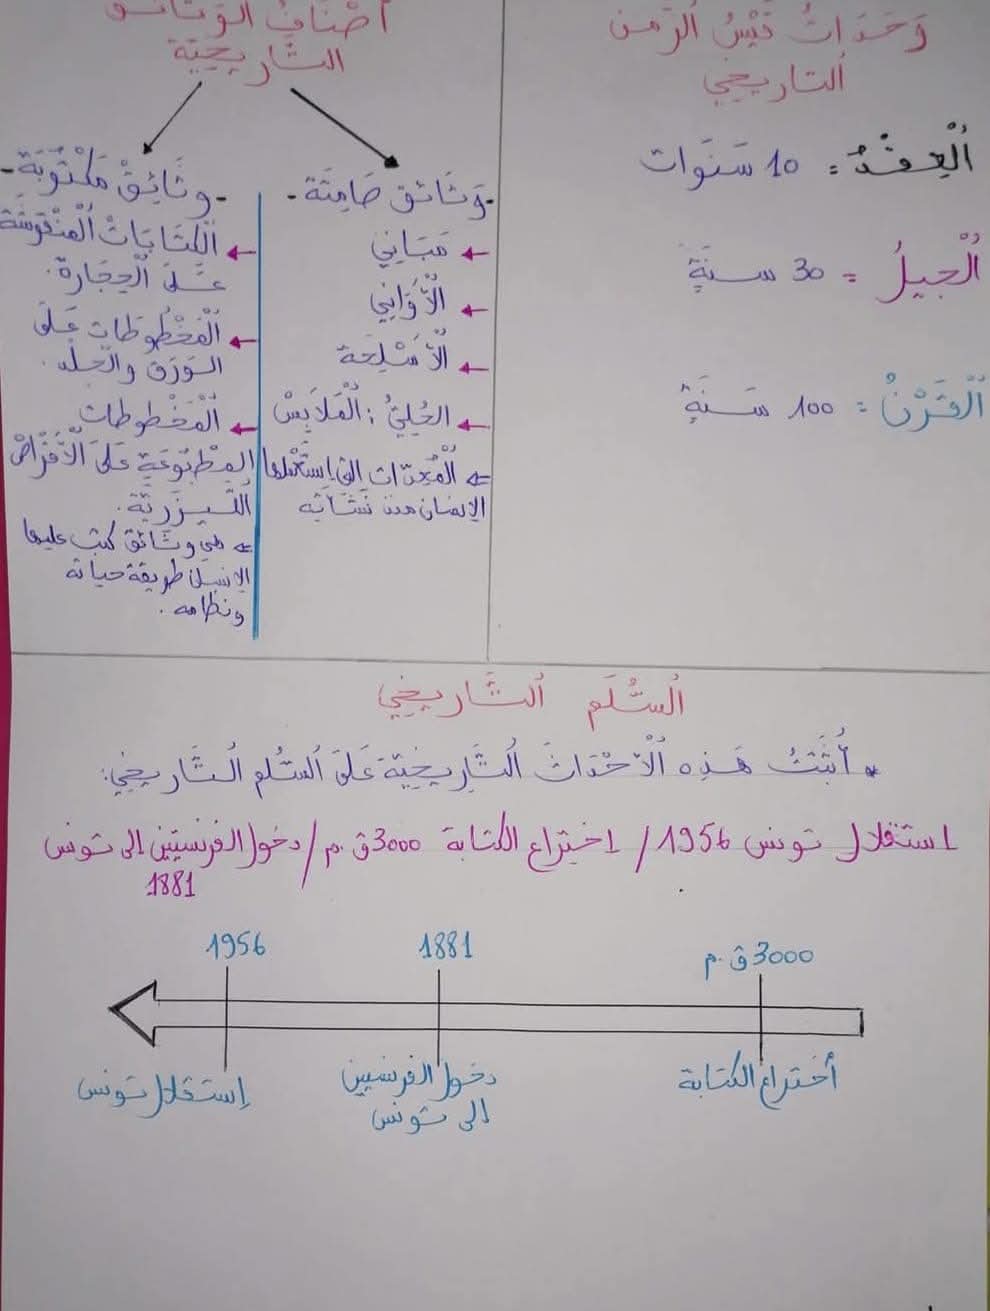 وَحَدَاتُ قَيْسُ الزَّمن
التاريخي
الْعِقْدُ = 10 سَنَوات
الْجيلُ = 30 سنةً
الْقَرْنُ = 100 سَنَةً
أصْنافُ الوَثائق
التَّاريخيّة
- وَثائق صَامِتَة -
← مَبَاني
← الْأَوَاني
← الْأَسْلِحَة
← الحُليُّ : الْمَلَابِسْ
⇐ الْمُعِدّات التي إستَعْملها
الإنسان منذ نَشْأَتِه
- وثَائِقْ مَكْتُوبَة -
← الْكتَابَاتْ الْمَنْقوشَة
عَلَى الْحِجَارَة.
← الْمَخْطُوطَات عَلَى
الوَرَق والجلْد.
← الْمَخْطوطات
المطْبُوعَةِ عَلَى الْأَقْرَاصْ
اللَّيزَريّة.
⇐ هي وثَائق كتبَ عليها
الإنسان طريقة حياته
ونظامه.
السُّلَم التَّاريخي
* أُثَبِّتُ هَذِه الْأَحْدَاثَ التَّارِيخيَّة عَلَى السُّلم التَّاريخي:
استقلال تونس 1956 / اختراع الكتابة 3000 ق.م / دخول الفرنسيّين إلى تونس
1881
3000 ق.م
1881
1956
أختراع الكتابة
دخول الفرنسيين
الى تونس
إستقلال تونس